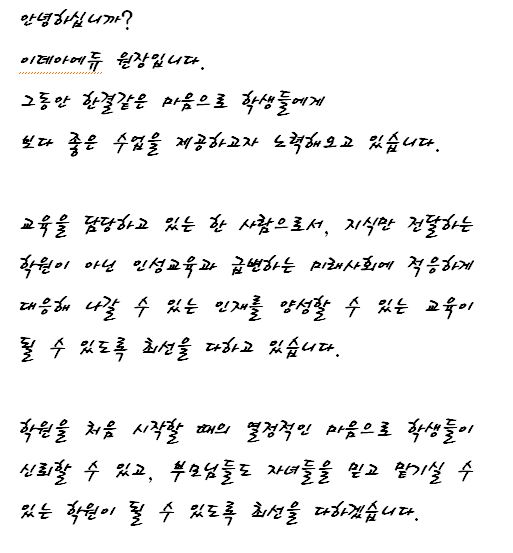 안녕하십니까?
이데아에듀 원장입니다.
그동안 한결같은 마음으로 학생들에게
보다 좋은 수업을 제공하고자 노력해오고 있습니다.
교육을 담당하고 있는 한 사람으로서, 지식만 전달하는
학원이 아닌 인성교육과 급변하는 미래사회에 적응하게
대응해 나갈 수 있는 인재를 양성할 수 있는 교육이
될 수 있도록 최선을 다하고 있습니다.
학원을 처음 시작할 때의 열정적인 마음으로 학생들이
신뢰할 수 있고, 부모님들도 자녀들을 믿고 맡기실 수
있는 학원이 될 수 있도록 최선을 다하겠습니다.